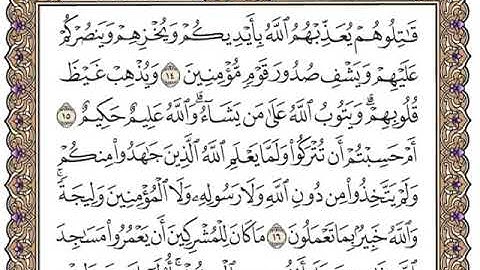 قَـٰتِلُوهُمْ يُعَذِّبْهُمُ ٱللَّهُ بِأَيْدِيكُمْ وَيُخْزِهِمْ وَيَنصُرْكُمْ
عَلَيْهِمْ وَيَشْفِ صُدُورَ قَوْمٍ مُّؤْمِنِينَ ١٤ وَيُذْهِبْ غَيْظَ
قُلُوبِهِمْ ۗ وَيَتُوبُ ٱللَّهُ عَلَىٰ مَن يَشَآءُ ۗ وَٱللَّهُ عَلِيمٌ حَكِيمٌ ١٥
أَمْ حَسِبْتُمْ أَن تُتْرَكُوا۟ وَلَمَّا يَعْلَمِ ٱللَّهُ ٱلَّذِينَ جَـٰهَدُوا۟ مِنكُمْ
وَلَمْ يَتَّخِذُوا۟ مِن دُونِ ٱللَّهِ وَلَا رَسُولِهِۦ وَلَا ٱلْمُؤْمِنِينَ وَلِيجَةً ۚ
وَٱللَّهُ خَبِيرٌۢ بِمَا تَعْمَلُونَ ١٦ مَا كَانَ لِلْمُشْرِكِينَ أَن يَعْمُرُوا۟ مَسَـٰجِدَ